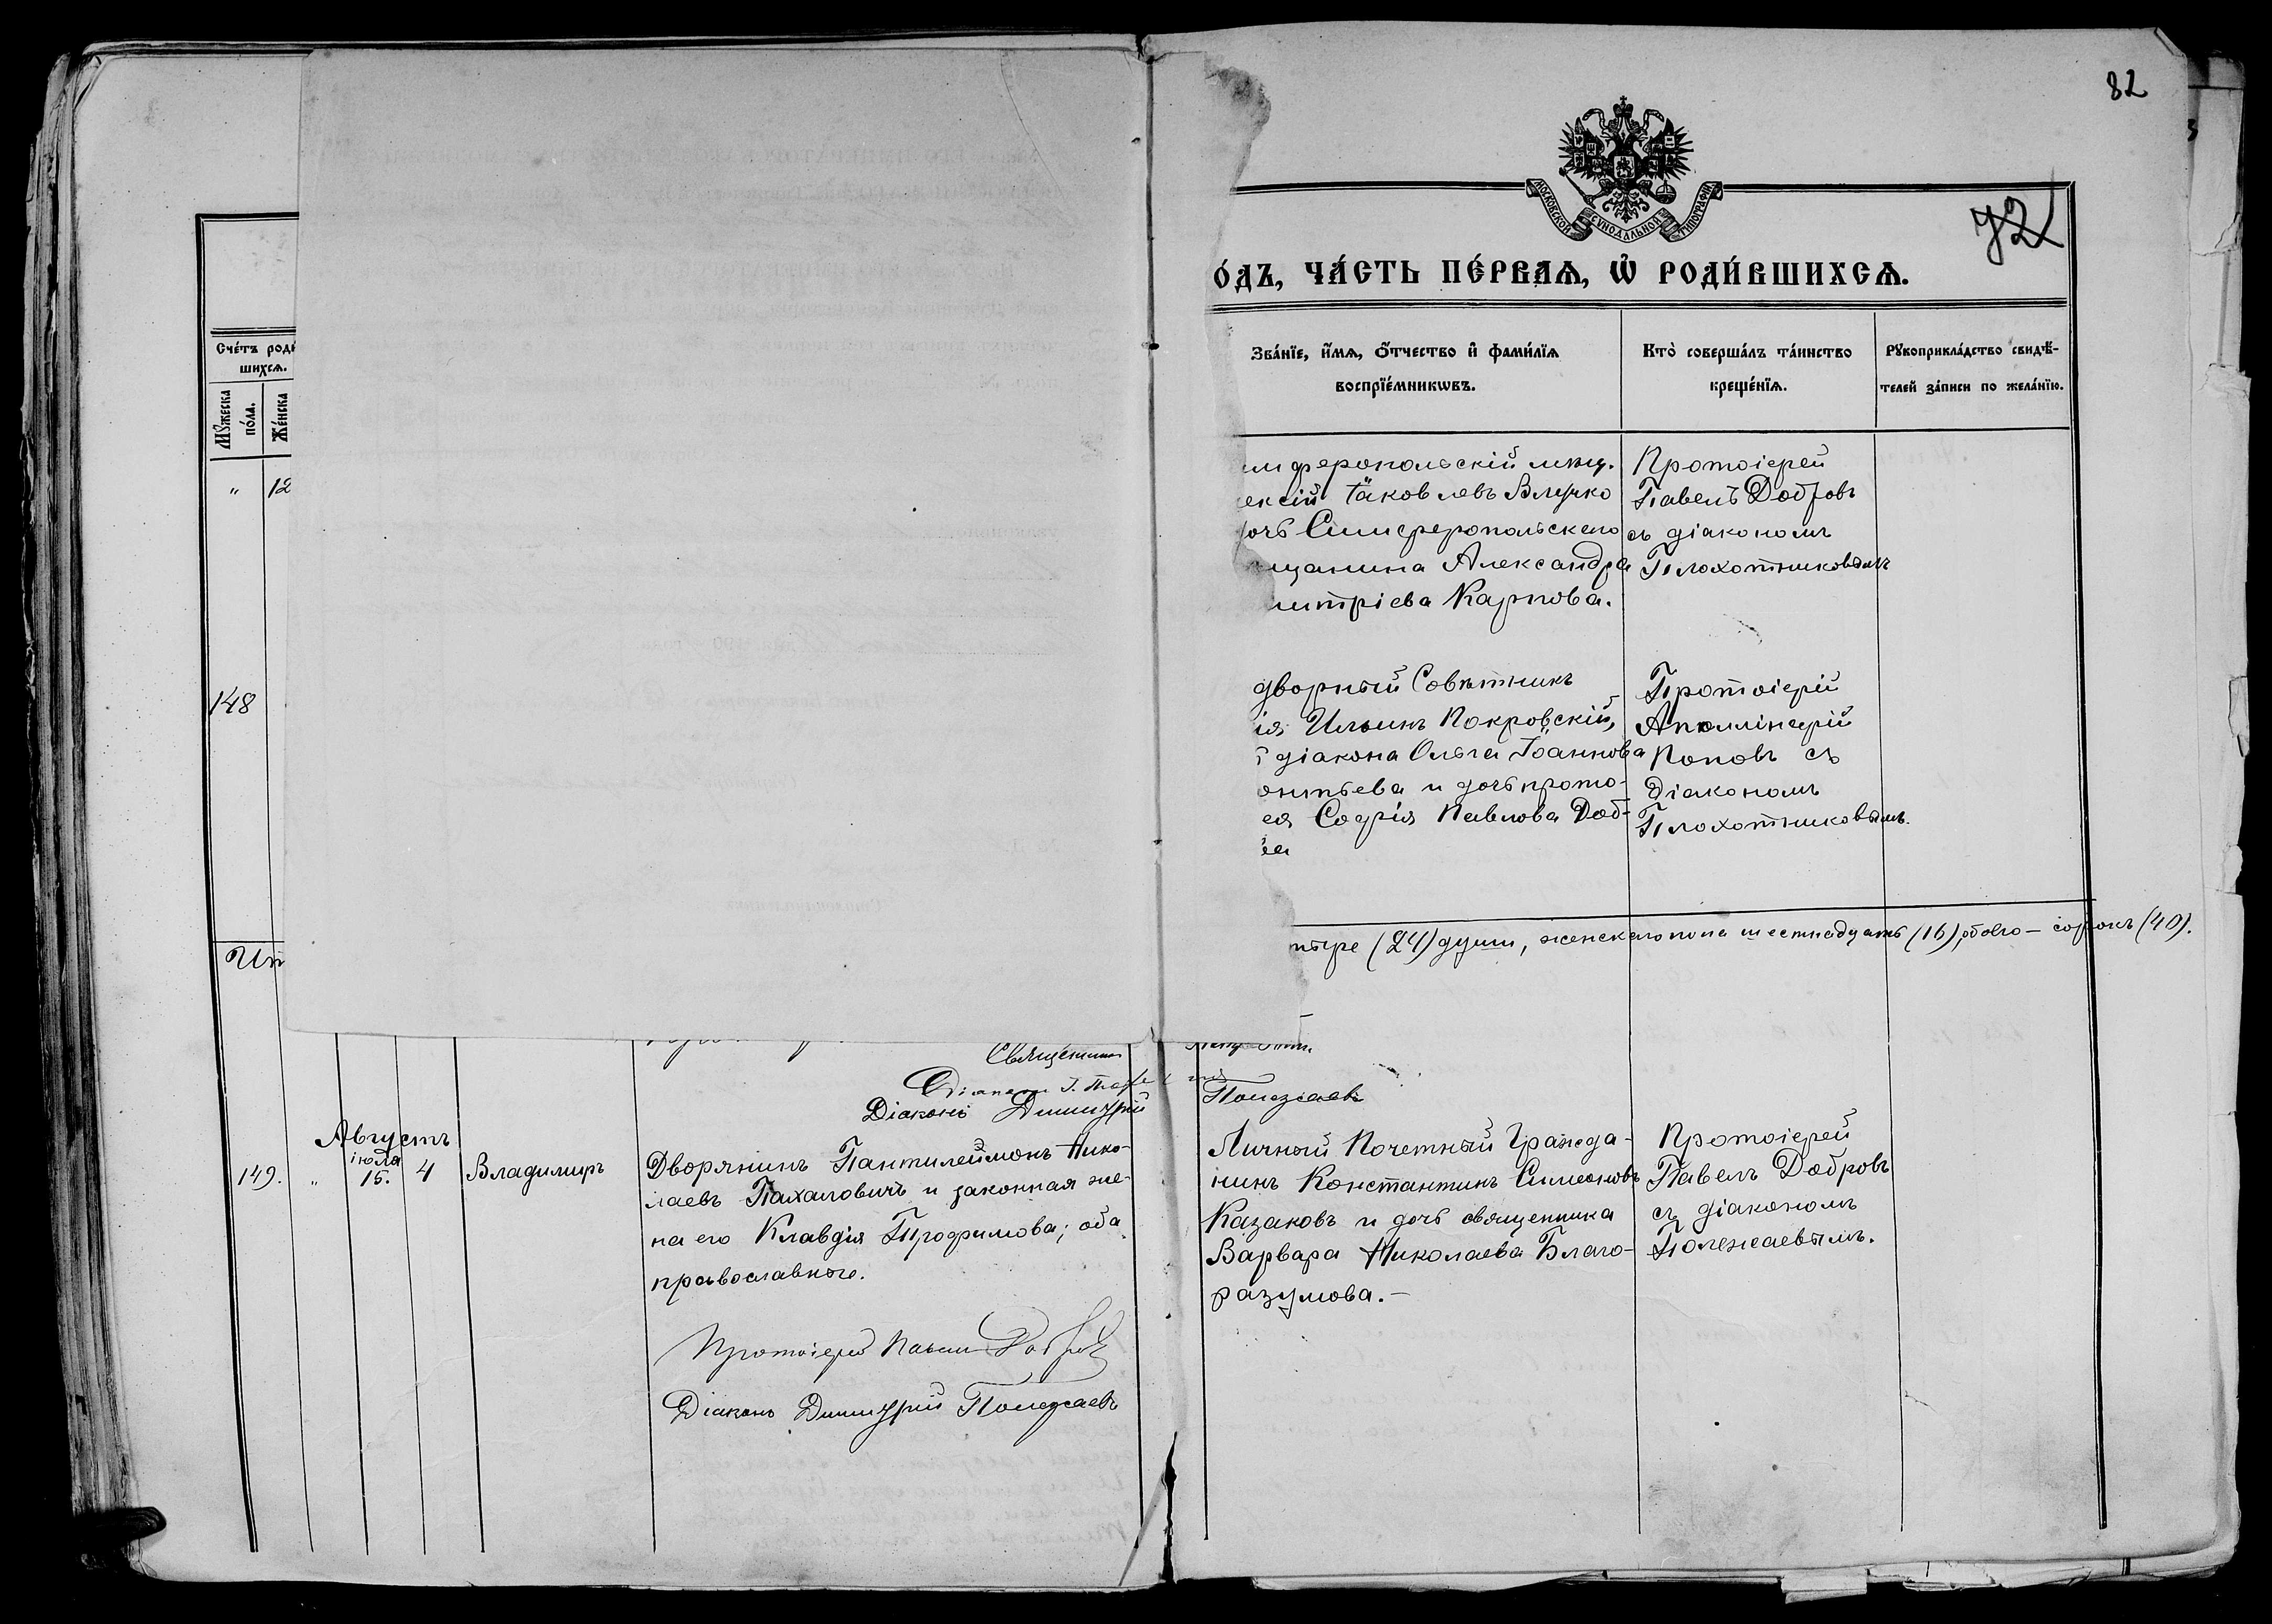 82
72
МОСКОВСКОЙ СѴНОДАЛЬНОЙ ТИПОГРАФІИ
О́ДЪ, ЧА́СТЬ ПЕ́РВАѦ, Ѡ҆ РОДИ́ВШИХСѦ.
Сче́тъ роди
шихсѧ.
Мꙋжеска по́ла.
Же́нска
Зва́нїе, и҆́мѧ, ѻ҆́тчество и҆ фами́лїѧ
воспрїе́мникѡвъ.
Кто̀ соверша́лъ та́инство
креще́нїѧ.
Рꙋкоприкла́дство свидѣ́-
телей за́писи по жела́нїю.
" 12
имферопольскій мѣщ.
ексій Іаковлевъ
очь Симферопольскаго
щанина Александра
митріева Карпова.
Протоіерей
Павелъ Добровъ
съ діакономъ
Плохотниковымъ
148
дворный Совѣтникъ
ія Ильинъ Покровскій,
діакона Ольга Іоаннова
онтьева и дочь прото-
ея Софія Павлова Доб-
ва
Протоіерій
Аполлінарій
Поповъ съ
Діакономъ
Плохотниковымъ.
Ит
тыре (24) души, женскаго пола шестнадцать (16), обоего — сорокъ (40).
Священник
Діаконъ Димитрій Полежаевъ
Августъ
149. " іюля 15. 4 Владимиръ
Дворянинъ Пантилеймонъ Нико-
лаевъ Пахаловичъ и законная же-
на его Клавдія Трофимова; оба
православные.
Личный Почетный Гражда-
нинъ Константинъ Симеоновъ
Казаковъ и дочь священника
Варвара Николаева Благо-
разумова.—
Протоіерей
Павелъ Добровъ
съ діакономъ
Полежаевымъ.
Протоіерей Павелъ Добровъ
Діаконъ Димитрій Полежаевъ